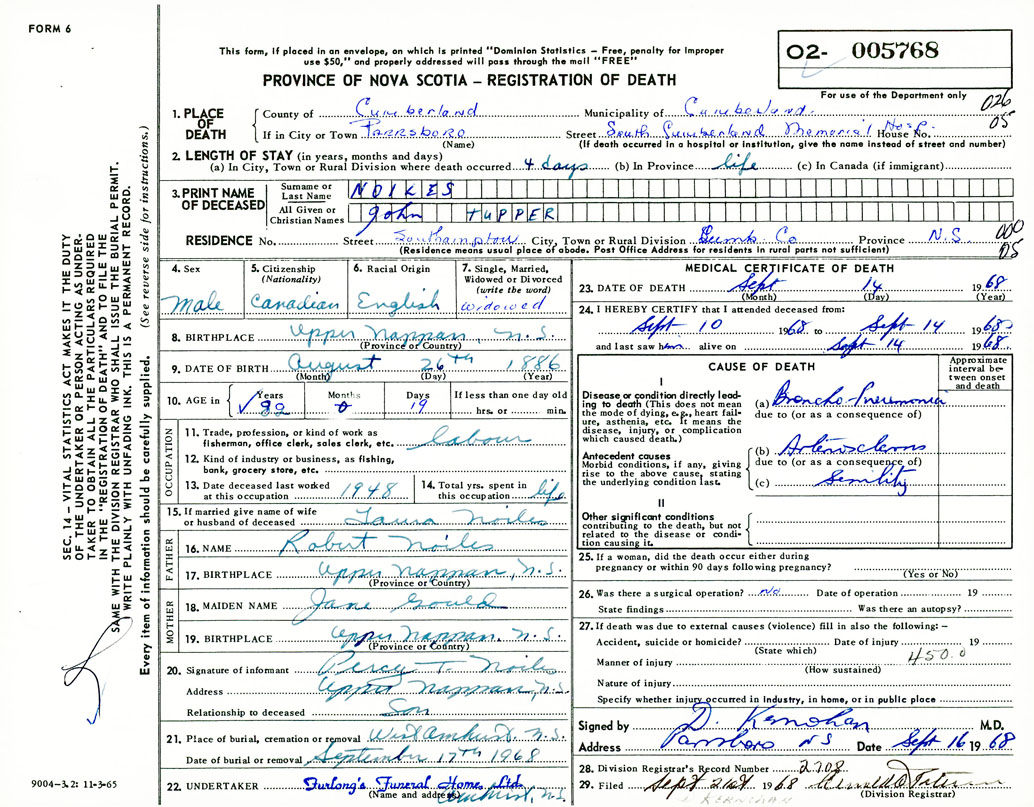 FORM 6
This form, if placed in an envelope, on which is printed "Dominion Statistics – Free, penalty for improper
use $50," and properly addressed will pass through the mail "FREE"
PROVINCE OF NOVA SCOTIA – REGISTRATION OF DEATH
02- 005768
For use of the Department only
026
05
1. PLACE OF DEATH
County of Cumberland Municipality of Cumberland.
If in City or Town Parrsboro Street South Cumberland Memorial Hosp. House No.
(Name) (If death occurred in a hospital or institution, give the name instead of street and number)
2. LENGTH OF STAY (in years, months and days)
(a) In City, Town or Rural Division where death occurred 4 days (b) In Province life (c) In Canada (if immigrant)
3. PRINT NAME OF DECEASED
Surname or Last Name NOILES
All Given or Christian Names John TUPPER
RESIDENCE No. Street Southampton City, Town or Rural Division Cumb Co Province N.S.
000
05
(Residence means usual place of abode. Post Office Address for residents in rural parts not sufficient)
4. Sex
Male
5. Citizenship (Nationality)
Canadian
6. Racial Origin
English
7. Single, Married, Widowed or Divorced (write the word)
Widowed
8. BIRTHPLACE Upper Nappan, N.S.
(Province or Country)
9. DATE OF BIRTH August 26th 1886
(Month) (Day) (Year)
10. AGE in Years 82 Months 0 Days 19 If less than one day old hrs. or min.
OCCUPATION
11. Trade, profession, or kind of work as
fisherman, office clerk, sales clerk, etc. labour
12. Kind of industry or business, as fishing,
bank, grocery store, etc.
13. Date deceased last worked
at this occupation 1948
14. Total yrs. spent in
this occupation life
15. If married give name of wife
or husband of deceased Laura Noiles
FATHER
16. NAME Robert Noiles
17. BIRTHPLACE Upper Nappan, N.S.
(Province or Country)
MOTHER
18. MAIDEN NAME Jane Gould
19. BIRTHPLACE Upper Nappan, N.S.
(Province or Country)
20. Signature of informant Percy T. Noiles
Address Upper Nappan, N.S.
Relationship to deceased Son
21. Place of burial, cremation or removal West Amherst, N.S.
Date of burial or removal September 17th 1968
22. UNDERTAKER Furlong's Funeral Home, Ltd.
(Name and address) Amherst, N.S.
MEDICAL CERTIFICATE OF DEATH
23. DATE OF DEATH Sept 14 1968
(Month) (Day) (Year)
24. I HEREBY CERTIFY that I attended deceased from:
Sept 10 1968 to Sept 14 1968
and last saw him alive on Sept 14 1968
CAUSE OF DEATH
Approximate interval between onset and death
I
Disease or condition directly leading to death (This does not mean the mode of dying, e.g., heart failure, asthenia, etc. It means the disease, injury, or complication which caused death.)
(a) Broncho-Pneumonia
due to (or as a consequence of)
Antecedent causes
Morbid conditions, if any, giving rise to the above cause, stating the underlying condition last.
(b) Arteriosclerosis
due to (or as a consequence of)
(c) Senility
II
Other significant conditions
contributing to the death, but not related to the disease or condition causing it.
25. If a woman, did the death occur either during
pregnancy or within 90 days following pregnancy?
(Yes or No)
26. Was there a surgical operation? no Date of operation 19
State findings Was there an autopsy?
27. If death was due to external causes (violence) fill in also the following: –
Accident, suicide or homicide? Date of injury 19
(State which)
450.0
Manner of injury
(How sustained)
Nature of injury
Specify whether injury occurred in industry, in home, or in public place
Signed by D. Kernohan M.D.
Address Parrsboro NS Date Sept 16 1968
28. Division Registrar's Record Number 2708
29. Filed Sept 21st 1968
(Division Registrar)
KERNOHAN
SEC. 14 – VITAL STATISTICS ACT MAKES IT THE DUTY
OF THE UNDERTAKER OR PERSON ACTING AS UNDER-
TAKER TO OBTAIN ALL THE PARTICULARS REQUIRED
IN THE "REGISTRATION OF DEATH" AND TO FILE THE
SAME WITH THE DIVISION REGISTRAR WHO SHALL ISSUE THE BURIAL PERMIT.
WRITE PLAINLY WITH UNFADING INK. THIS IS A PERMANENT RECORD.
Every item of information should be carefully supplied. (See reverse side for instructions.)
9004-3.2: 11-3-65